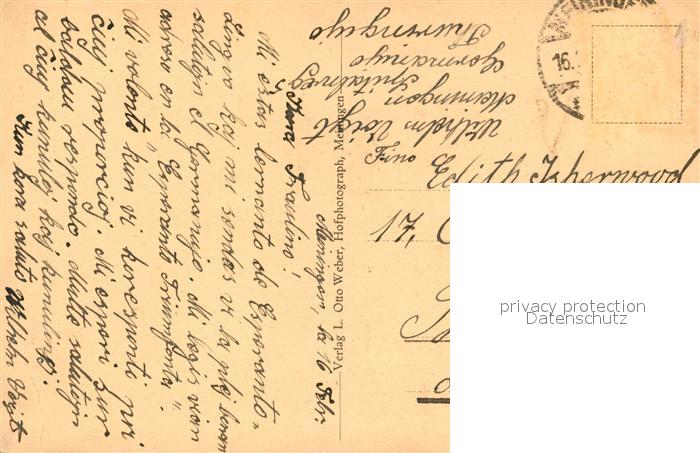 Meiningen, la 16 Febr.
Kara Fraulino!
Mi estas lernanto de Esperanto-
Lingvo kaj mi sendas vi la plej bonan
salutojn el Germanujo. Mi legis vian
adreso en la "Esperanto Triumfonta".
Mi volonte kun vi korespondi pri
ĉiuj proporcioj. Mi esperi sur
baldau respondo. Multe salutojn
al ĉiuj kunuloj kaj kunulinoj.
Kun kora saluto Wilhelm Voigt
Verlag L. Otto Weber, Hofphotograph, Meiningen
Wilhelm Voigt
Meiningen
Germanujo
Thuringujo
MEININGEN
16.
Fino Edith Isherwood
17,
privacy protection
Datenschutz